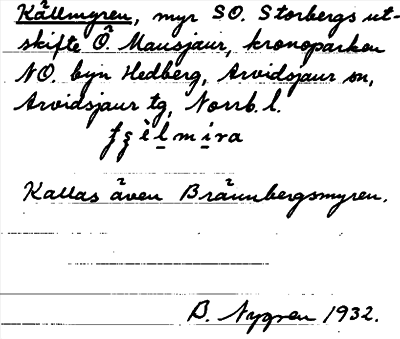 Källmyren, myr SO. Storbergs ut-
skifte Ö. Mausjaur, kronoparken
NO. byn Hedberg, Arvidsjaur sn,
Arvidsjaur tg, Norrb. l.
Kallas även Brännbergsmyren.
B. Nygren 1932.